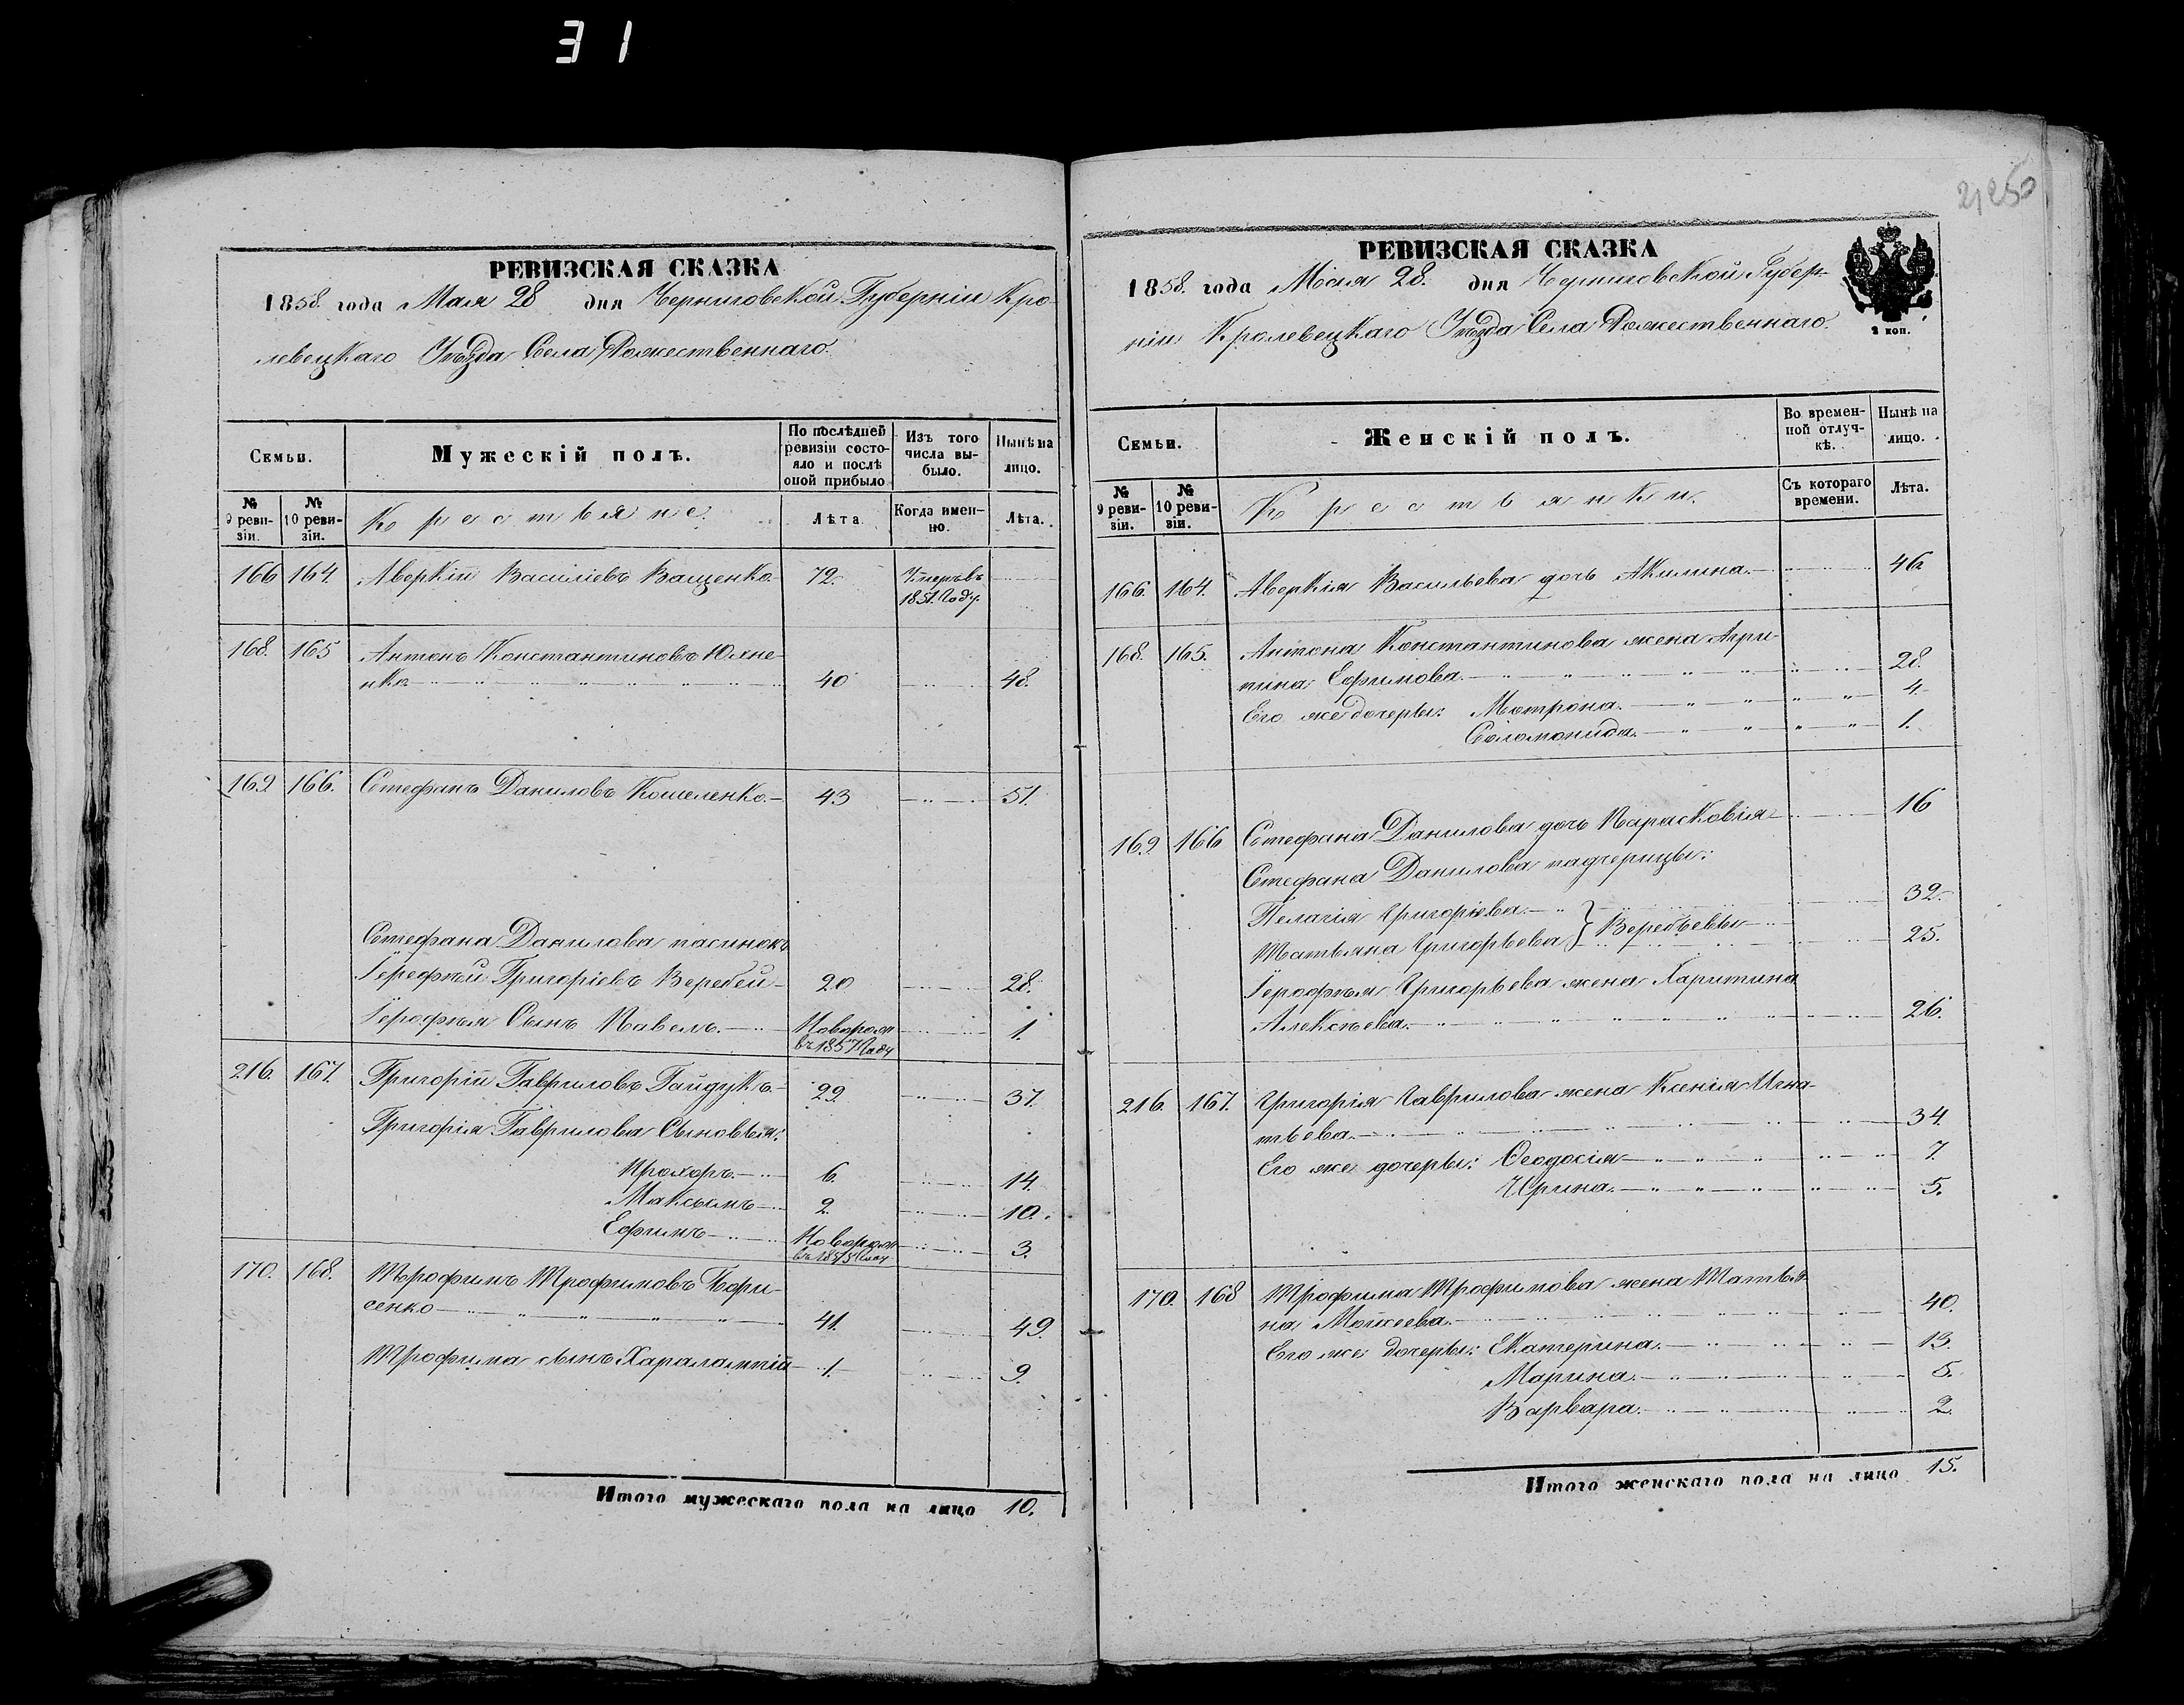 31
21250
РЕВИЗСКАЯ СКАЗКА
1858. года Мая 28 дня Черниговской Губерніи Кро-
левецкаго Уѣзда Села Рожественнаго.
Семьи.
Мужескій полъ.
По послѣдней ревизіи состояло и послѣ оной прибыло
Изъ того числа выбыло.
Нынѣ на лицо.
№ 9 ревизіи.
№ 10 ревизіи.
Крестьяне.
Лѣта.
Когда именно.
Лѣта.
166 164. Аверкій Василіевъ Ващенко 72. Умеръ въ
1851. Году.
168. 165 Антонъ Константиновъ Юхне-
нко 40 48.
169 166. Стефанъ Даниловъ Кошеленко. 43 51.
Стефана Данилова пасинокъ
Герофѣй Григоріевъ Веребей 20 28.
Герофѣя Сынъ Павелъ. Новорож
въ 1857 Году 1.
216. 167. Григорій Гавриловъ Гайдукъ 29. 37.
Григорія Гаврилова Сыновья:
Прохоръ. 6. 14.
Максимъ 2. 10.
Ефимъ Новорож
въ 1855 Году 3.
170. 168. Трофимъ Трофимовъ Бори-
сенко 41. 49.
Трофима сынъ Харалампій 1. 9.
Итого мужескаго пола на лицо 10.
РЕВИЗСКАЯ СКАЗКА
1858. года Мая 28. дня Черниговской Губер-
ніи Кролевецкаго Уѣзда Села Рожественнаго.
2 коп.
Семьи.
Женскій полъ.
Во временной отлучкѣ.
Нынѣ на лицо.
№ 9 ревизіи.
№ 10 ревизіи.
Крестьянки.
Съ котораго времени.
Лѣта.
166. 164. Аверкія Васильева дочь Акилина. 46
168. 165. Антона Константинова жена Агри-
пина Ефимова. 28.
Его же дочеры: Мотрона. 4.
Соломонида. 1.
169. 166 Стефана Данилова дочь Парасковія 16
Стефана Данилова падчерицы:
Пелагія Григоріева. 32.
Татьяна Григорьева } Веребьевы 25.
Герофѣя Григорьева жена Харитина
Алексѣева. 26.
216. 167. Григорія Гаврилова жена Ксенія Игна-
тьева. 34.
Его же дочеры: Ѳеодосія 7.
Ирина. 5.
170. 168 Трофима Трофимова жена Татья-
на Моисеева. 40.
Его же дочеры: Екатерина. 13.
Марина. 5.
Варвара. 2.
Итого женскаго пола на лицо 15.